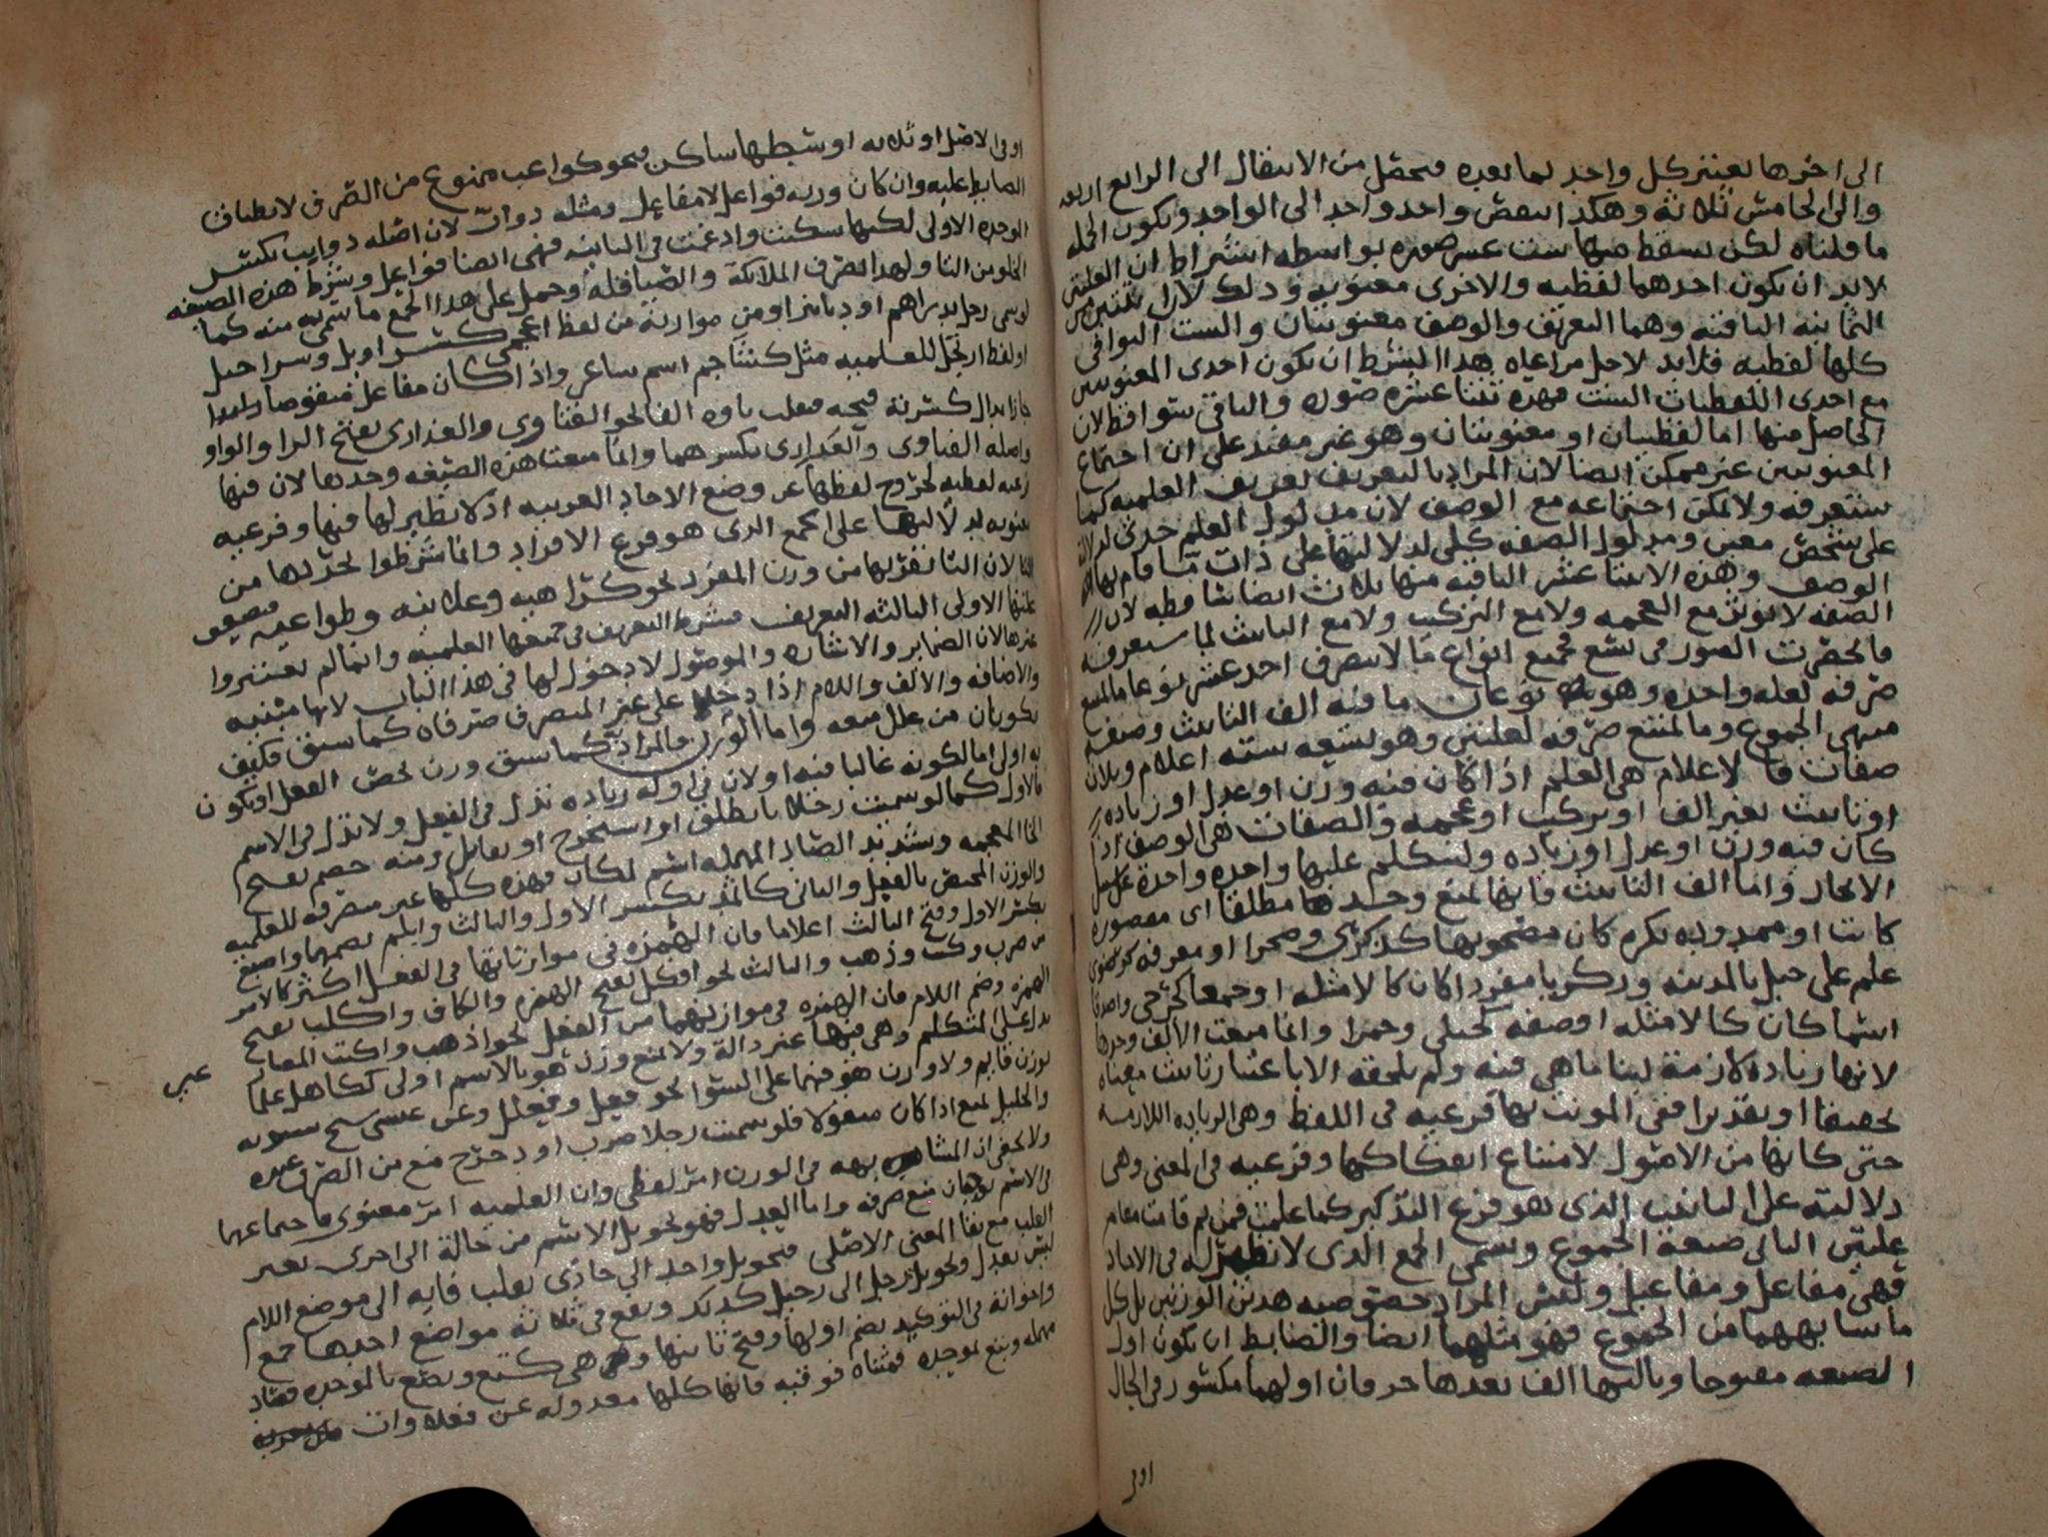 الى اخرها يعتبر كل واحد لما بعده فتحصل من الانتقال الى الرابع اربعه
والى الخامس ثلاثة وهكذا تنقص واحد واحد الى الواحد وتكون الجمله
ما قلناه لكن يسقط منها ست عشر صوره بواسطه اشتراط ان العلتين
لابد ان يكون احدهما لفظيه والاخرى معنويه وذلك لان اثنتين من
الثمانيه الباقيه وهما التعريف والوصف معنويتان والست البواقي
كلها لفظيه فلابد لاجل مراعاه هذا الشرط ان يكون احدى المعنويتين
مع احدى اللفظيات الست فهذه ثنتا عشره صوره والباقي سواقط لان
الحاصل منها اما لفظيتان او معنويتان وهو غير مفيد على ان اجتماع
المعنويتين غير ممكن ايضا لان المراد بالتعريف تعريف العلميه كما
ستعرفه ولا يمكن اجتماعه مع الوصف لان مدلول العلم جزئ لدلالته
على شخص معين ومدلول الصفه كلي لدلالتها على ذات ما قام بها
الوصف وهذه الاثنتا عشر الباقيه منها ثلاث ايضا ساقطه لان
الصفه لا تؤثر مع العجمه ولا مع التركيب ولا مع التانيث لما ستعرفه
فانحصرت الصور في تسع فجميع انواع ما لا ينصرف احد عشر نوعا ما امتنع
صرفه لعله واحده وهو نوعان ما فيه الف التانيث وصيغه
منتهى الجموع وما امتنع صرفه لعلتين وهو تسعه سته اعلام وثلاث
صفات فالاعلام هي العلم اذا كان فيه وزن او عدل او زياده
او تانيث بغير الف او تركيب او عجمه والصفات هي الوصف اذا
كان فيه وزن او عدل او زياده ولنتكلم عليها واحده واحدة على سبيل
الايجاز واما الف التانيث فانها تمنع وحدها مطلقا اى مقصوره
كانت او ممدوده نكره كان مصحوبها كذكرى وصحرا او معرفه كرضوى
علم على جبل بالمدينه وزكريا مفردا كان كالامثله او جمعا كجرحى واصدقا
اسما كان كالامثله او صفه كحبلى وحمرا وانما منعت الالف وحدها
لانها زياده لازمة لبنا ما هي فيه ولم تلحقه الا باعتبار تانيث معناه
تحقيقا او تقديرا ففي المونث بها فرعيه في اللفظ وهي الزياده اللازمه
حتى كانها من الاصول لامتناع انفكاكها وفرعيه في المعنى وهى
دلالته على التانيث الذى هو فرع التذكير كما علمت فمن ثم قامت مقام
علتين الثاني صيغة الجموع وتسمى الجمع الذى لا نظير له في الاحاد
فهي مفاعل ومفاعيل وليس المراد خصوصيه هذين الوزنين بل كل
ما شابههما من الجموع فهو مثلهما ايضا والضابط ان يكون اول
الصيغه مفتوحا وثالثها الف بعدها حرفان اولهما مكسور في الحال
او في
او في الاصل او ثلاثه اوسطها ساكن فنحو كواعب ممنوع من الصرف لانطباق
الضابط عليه وان كان وزنه فواعل لا مفاعل ومثله دواب لان اصله دوابب بكسر
الموحده الاولى لكنها سكنت وادغمت في الثانيه فهي ايضا فواعل وشرط هذه الصيغه
الخلو من التا ولهذا انصرف الملائكة والصياقله وحمل على هذا الجمع ما سمى به منه كما
لو سمى رجل بدراهم او دنانير او من موازنه من لفظ اعجمي كسراويل وسراحيل
او لفظ ارتجل للعلميه مثل كشاجم اسم شاعر واذا كان مفاعل منقوصا
جاز ابدال كسرته فتحه فتقلب ياوه الفا نحو الفتاوى والعذارى بفتح الرا والواو
واصله الفتاوى والعذارى بكسرهما وانما منعت هذه الصيغه وحدها لان فيها
فرعيه لفظيه لخروج لفظها عن وضع الاحاد العربيه اذ لا نظير لها فيها وفرعيه
معنويه لدلالتها على الجمع الذى هو فرع الافراد وانما شرطوا تجردها من
التا لان التا تقربها من وزن المفرد نحو كراهيه وعلانيه وطواعيه فيضعف
علتها الاولى الثالثه التعريف فشرط التعريف في جميعها العلميه وانما لم يعتبروا
غيرها لان الضماير والاشاره والموصول لا دخول لها في هذا الباب لانها مبنيه
والاضافه والالف واللام اذا دخلا على غير المنصرف صرفاه كما سبق فكيف
يكونان من علل منعه واما الوزن فالمراد كما سبق وزن يخص الفعل او يكون
به اولى اما لكونه غالبا فيه او لان في اوله زياده تدل في الفعل ولا تدل في الاسم
فالاول كما لو سميت رجلا بانطلق او استخرج او تقاتل ومنه خضم بفتح
الخا المعجمه وتشديد الضاد المهمله اسم لمكان فهذه كلها غير منصرفه للعلميه
والوزن المختص بالفعل والثاني كاثمد بكسر الاول والثالث وابلم بضمهما واصبع
بكسر الاول وفتح الثالث اعلاما فان الهمزه في موازناتها في الفعل اكثر كالامر
من ضرب وكتب وذهب والثالث نحو افكل بفتح الهمزه والكاف واكلب بفتح
الهمزه وضم اللام فان الهمزه في موازنهما من الفعل نحو اذهب واكتب المضارع
تدل على المتكلم وهي فيها غير دالة ولا يمنع وزن هو بالاسم اولى ككاهل علما
عيسى
بوزن قايم ولا وزن هو فيهما على السوا نحو فعل وفعلل وعن عيسى شيخ سيبويه
والخليل يمنع اذا كان منقولا فلو سميت رجلا ضرب او دحرج منع من الصرف عنده
ولا يخفى ان المشابهه في الوزن امر لفظي وان العلميه امر معنوى فاجتماعهما
في الاسم يوجبان منع صرفه واما العدل فهو تحويل الاسم من حالة الى اخرى لغير
القلب مع بقا المعنى الاصلى فتحويل واحد الى حادى بقلب فايه الى موضع اللام
ليس بعدل وتحويل رجل الى رجيل كذلك ويقع في ثلاثة مواضع احدها جمع
واخواته في التوكيد بضم اولها وفتح ثانيها وهى كتع وبصع بالموحده فصاد
مهمله وبتع بموحده فمثناه فوقيه فانها كلها معدوله عن فعلاوات